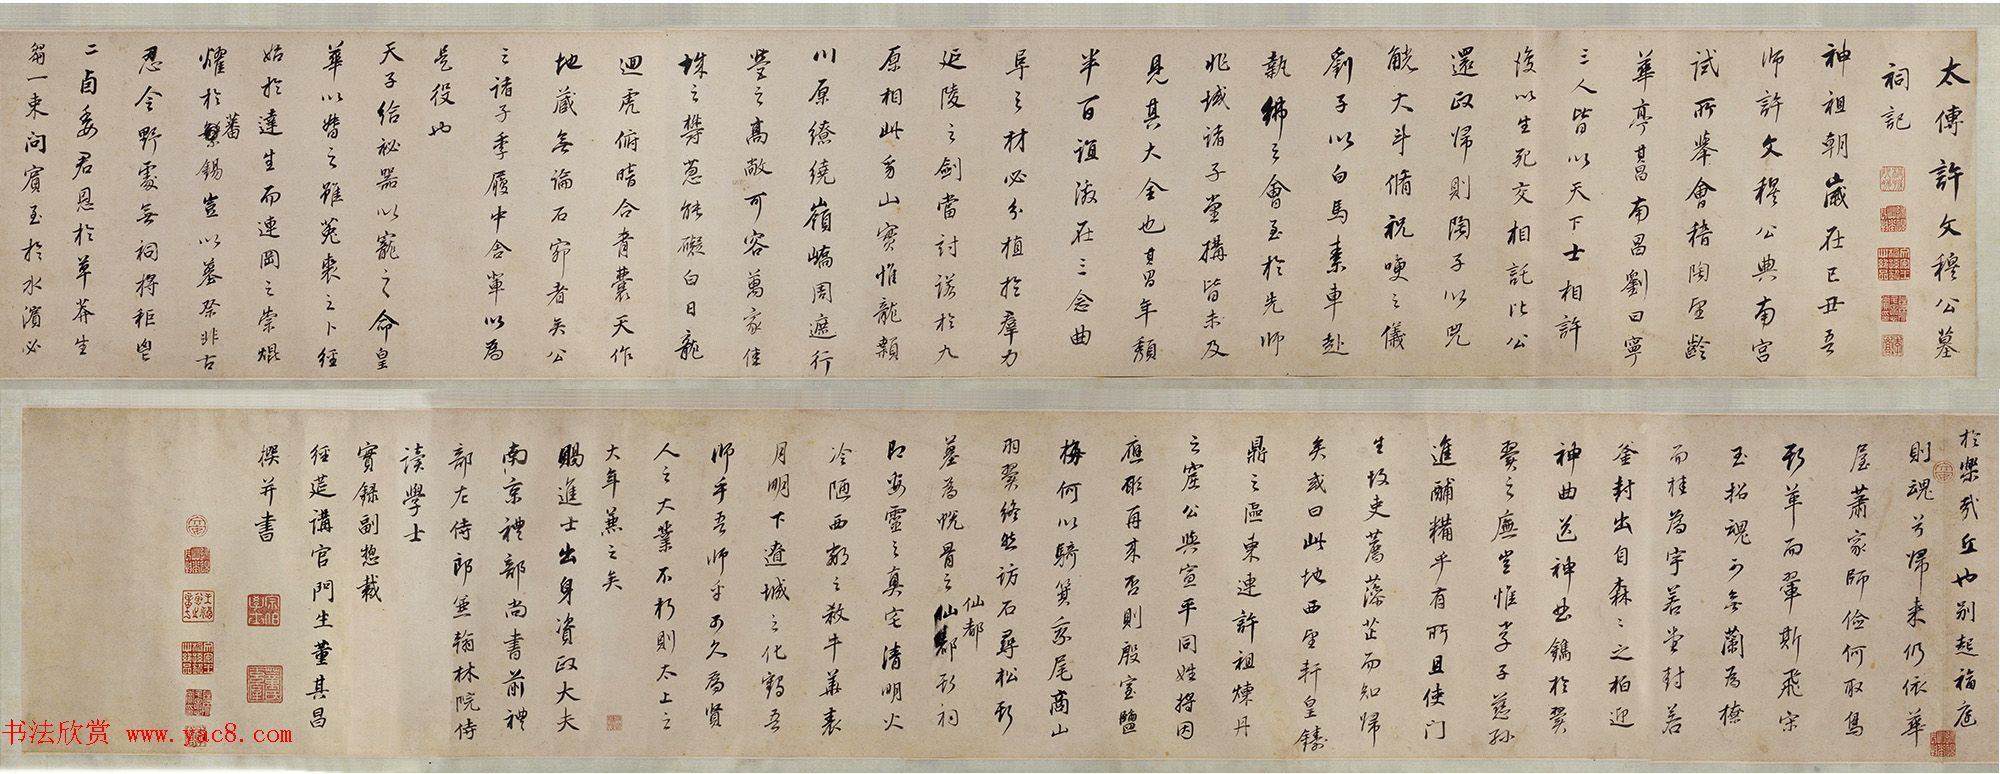 太傅許文穆公墓
祠記
神祖朝歲在己丑吾
師許文穆公典南宮
試所舉會稽陶望齡
華亭其昌南昌劉曰寧
三人皆以天下士相許
後以生死交相託比公
還政歸則陶子以兕
觥大斗脩祝哽之儀
劉子以白馬素車赴
執紼之會至於先師
兆域諸子堂構皆未及
見其大全也其昌年頹
半百誼激在三念曲
阜之材必分植於羣力
延陵之劍當討諾於九
原相此身山實惟龍額
川原繚繞嶺嶠周遮行
營之高敞可容萬家佳
城之欎蔥能礙白日龍
迴虎俯暗合青囊天作
地藏無論石窌者矣公
之諸子季履中含軍以為
是役也
天子給祕器以寵之命皇
華以督之雖菟裘之卜經
始於達生而連岡之崇焜
燿於蕃錫豈以墓祭非古
忍令野處無祠將秬鬯
二卣委君恩於草莽生
芻一束問賓至於水濱必
於樂哉丘也別起福庭
則魂兮歸来仍依華
屋蕭家師儉何取鳥
革而翬斯飛宋
玉招魂可無蘭為橑
而桂為宇若堂封若
釜封出自森之之柏迎
神曲送神曲鐫於翼
翼之廡豈惟孝子慈孫
進酺糒乎有所且使門
生故吏薦藻芷而知歸
矣或曰此地西望軒皇鑄
鼎之區東連許祖煉丹
之窟公與宣平同姓將因
應願再来否則殷室鹽
梅何以騎箕系尾商山
羽翼終然訪石尋松斯
墓為蛻骨之仙都斯祠
即妥靈之真宅清明火
冷陋西鄰之殺牛華表
月明下遼城之化鶴吾
師乎吾師乎可久為賢
人之大業不朽則太上之
大年兼之矣
賜進士出身資政大夫
南京禮部尚書前禮
部左侍郎兼翰林院侍
讀學士
實錄副緫裁
經筵講官門生董其昌
撰并書
书法欣赏 www.yac8.com